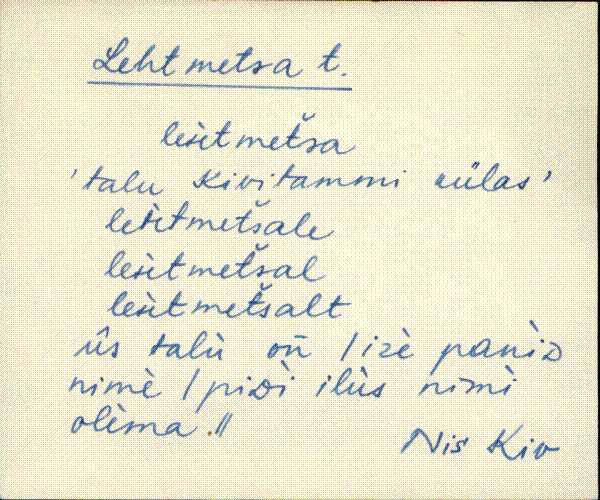 Lehtmetsa t.
leìtmeťša
'talu Kivitammi külas'
leìtmeťšale
leìtmeťšal
leìtmeťšalt
ûs talù oñ / izè panìD
nimè / piDì ilùs nimì
olèma .//
Nis Kiv